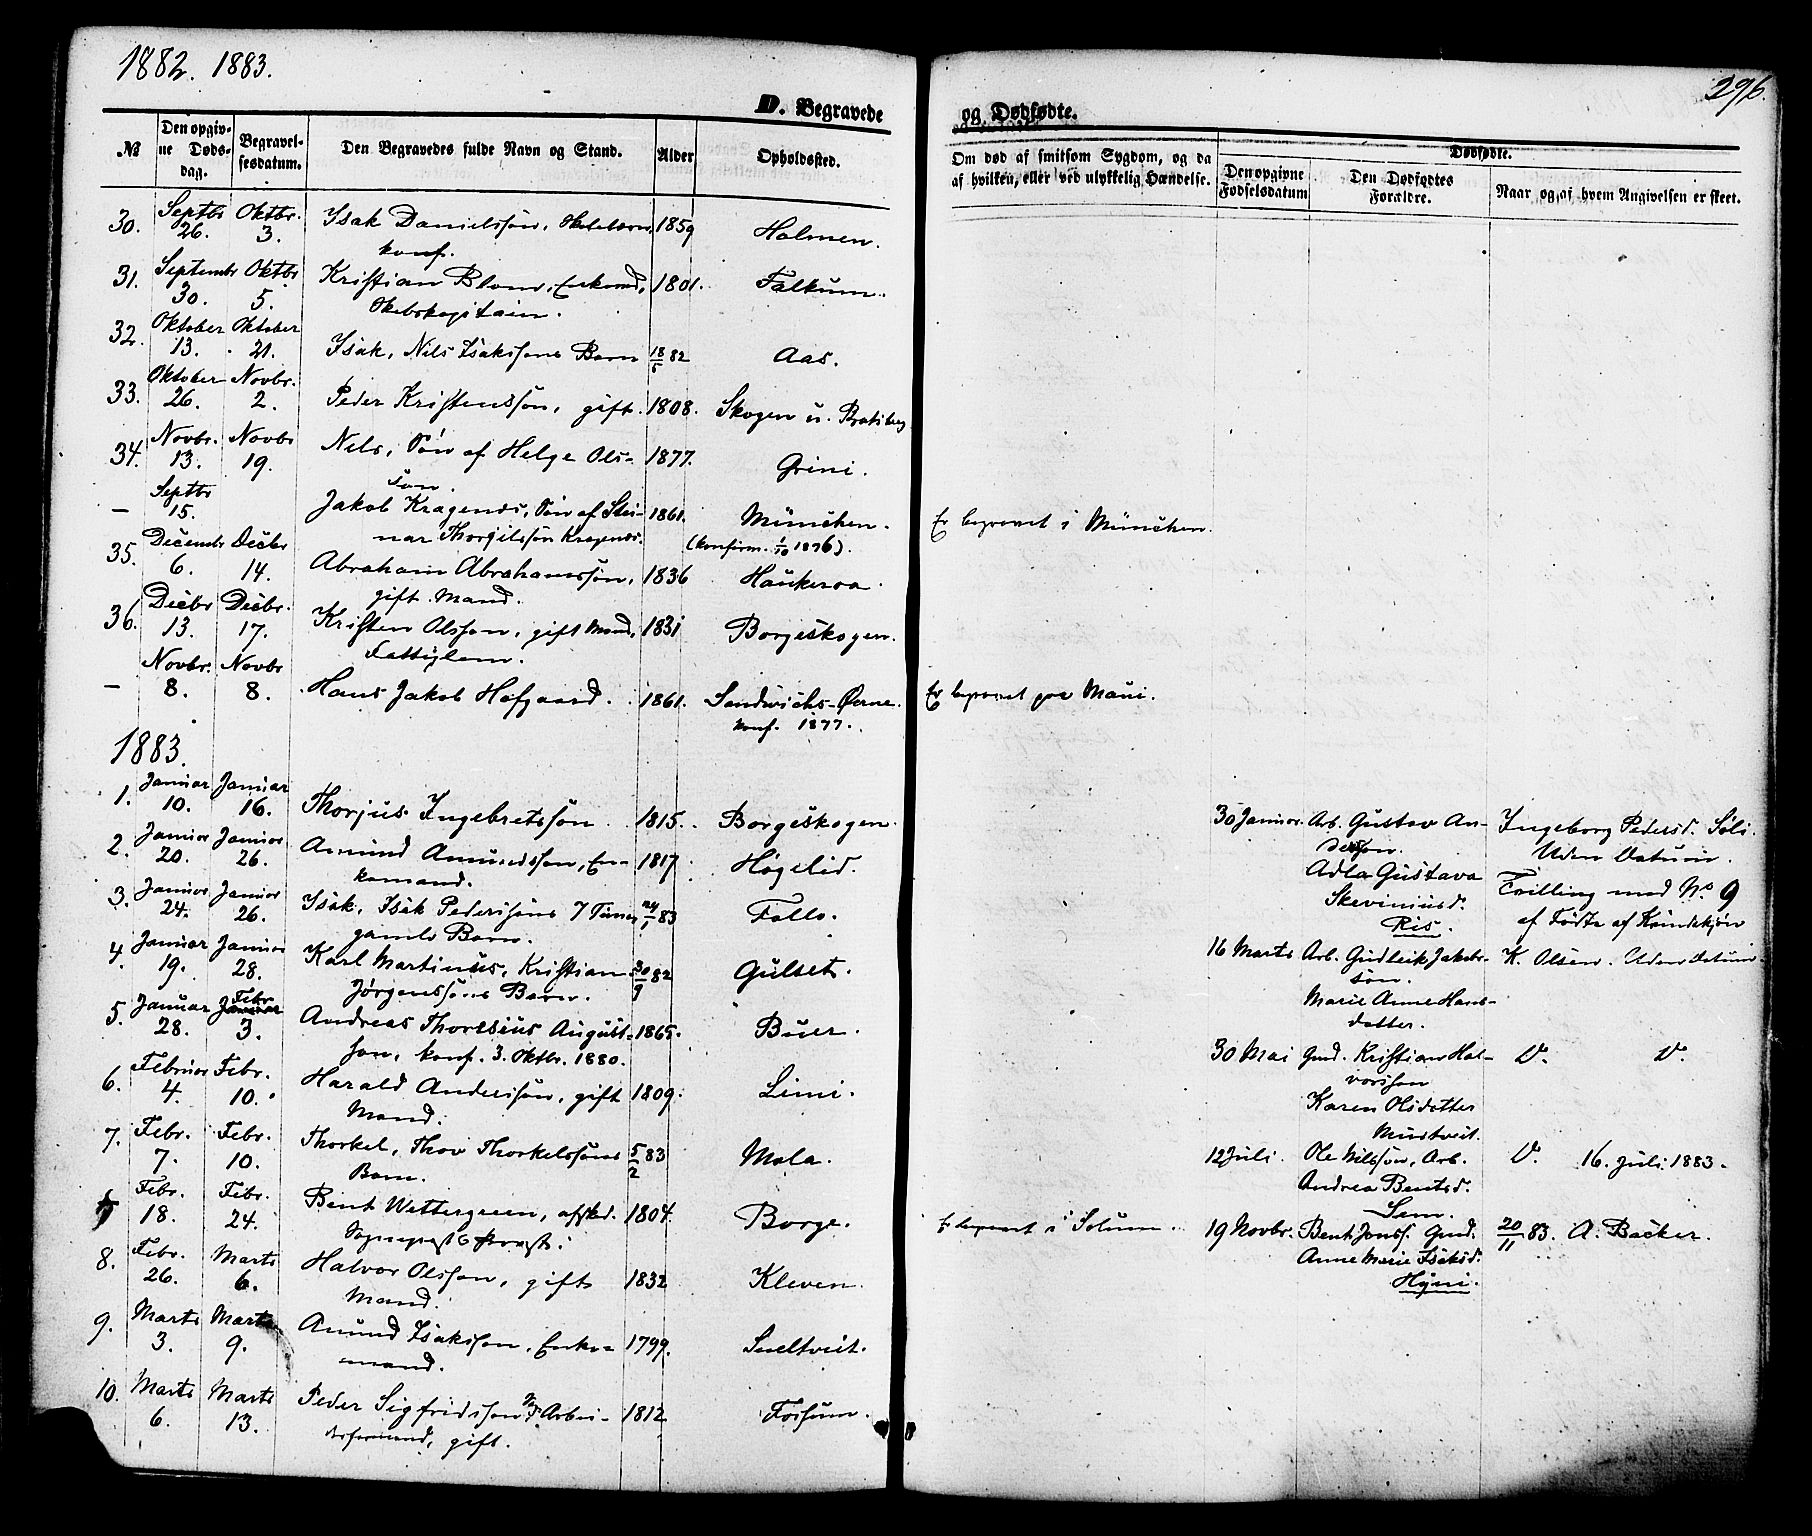 1882. 1883.
296.
D. Begravede og Dødfødte.
№ | Den opgivne Dødsdag. | Begravelsesdatum. | Den Begravedes fulde Navn og Stand. | Alder | Opholdssted. | Om død af smitsom Sygdom, og da af hvilken, eller ved ulykkelig Hændelse. | Dødfødte. Den opgivne Fødselsdatum | Den Dødfødtes Forældre. | Naar og af hvem Angivelsen er skeet.
30. Septbr 26. Oktbr. 3. Isak Danielssøn, konf. 1859 Holmen.
31. Septembr 30. Oktbr 5. Kristian Blom, Enkemd, Skibskapitain. 1801. Falkum.
32. Oktober 13. Oktober 21. Isak, Nils Isakssøns Barn 18/6 82 Aas.
33. Oktober 26. Novbr. 2. Peder Kristenssøn, gift. 1808. Skogen u. Bratsberg
34. Novbr. 13. Novbr 19. Nils, Søn af Helge Olssøn. 1877. Grini.
— Septbr 15. Jakob Kragenes, Søn af Steinar Thorgilssøn Kragenes. 1861. München. (konfirm. 1/10 1876). Er begravet i München.
35. Decembr 6. Decbr 14. Abraham Abrahamssøn, gift Mand. 1836 Haukeroa.
36. Decbr 13. Decbr. 17. Kristen Olssøn, gift Mand, Fattiglem. 1831 Borgeskogen.
— Novbr. 8. Novbr 8. Hans Jakob Hofgaard. 1861. Sandwichs-Øerne. konf. 1877. Er begravet paa Maui.
1883.
1. Januar 10. Januar 16. Thorjus Ingebretssøn. 1815. Borgeskogen.
2. Januar 20. Januar 26. Amund Amundssøn, Enkemand. 1817. Høgelid.
3. Januar 24. Januar 26. Isak, Isak Pederssøns 7 Timer gamle Barn. 24/1 83 Follo.
4. Januar 19. Januar 28. Karl Martinus, Kristian Jørgenssøns Barn. 30/9 82 Gulset.
5. Januar 28. Febr. 3. Andreas Thoresius Augustson, konf. 3. Oktbr. 1880. 1865. Buer.
6. Februar 4. Febr. 10. Harald Anderssøn, gift Mand. 1809. Limi.
7. Febr. 7. Febr. 10. Thorkel, Thov Thorkelssøns Barn. 5/2 83 Mæla.
Febr. 18. Febr. 24. Bent Wettergreen, afsked. Sogneprest 1804. Borge. Er begravet i Solum.
8. Febr. 26. Marts 6. Halvor Olsson, gift Mand. 1832 Kleven.
9. Marts 3. Marts 9. Amund Isaksson, Enkemand. 1799. Sneltveit.
10. Marts 6. Marts 13. Peder Sigfridsson, Arbeidsformand, gift. 1812. Fossum.
30 Januar. Arb. Gustav Andersson. Adla Gustava Skeviniusd. Ris. Ingeborg Pedersd. Søli. Uden Datum. Tvilling med No 9 af Fødte af Kvindekjøn
16 Marts Arb. Gudleik Jakobssøn. Marie Anne Hansdatter. K. Olsen. Uden Datum
30 Mai Gmd. Kristian Halvorssøn Karen Olsdatter Mustveit. D. D.
12 Juli. Ole Nilssøn, Arb. Andrea Bentsd. Sem. D. 16. Juli 1883.
19 Novbr. Bent Jonss. Gmd. Anne Marie Isaksd. Hyni. 20/11 83. A. Backer.